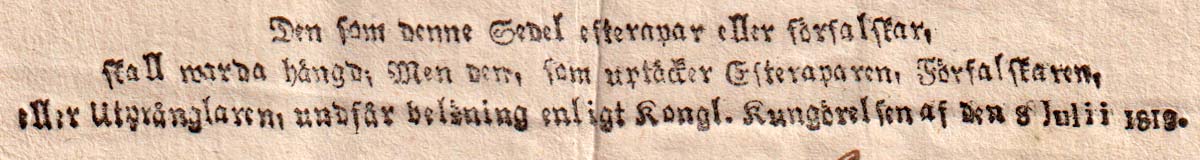 Den som denne Sedel efterapar eller förfalskar,
skall warda hängd; Men den, som uptäcker Efteraparen, Förfalskaren,
eller Utprånglaren, undfår belöning enligt Kongl. Kungörelsen af den 8 Julii 1812.